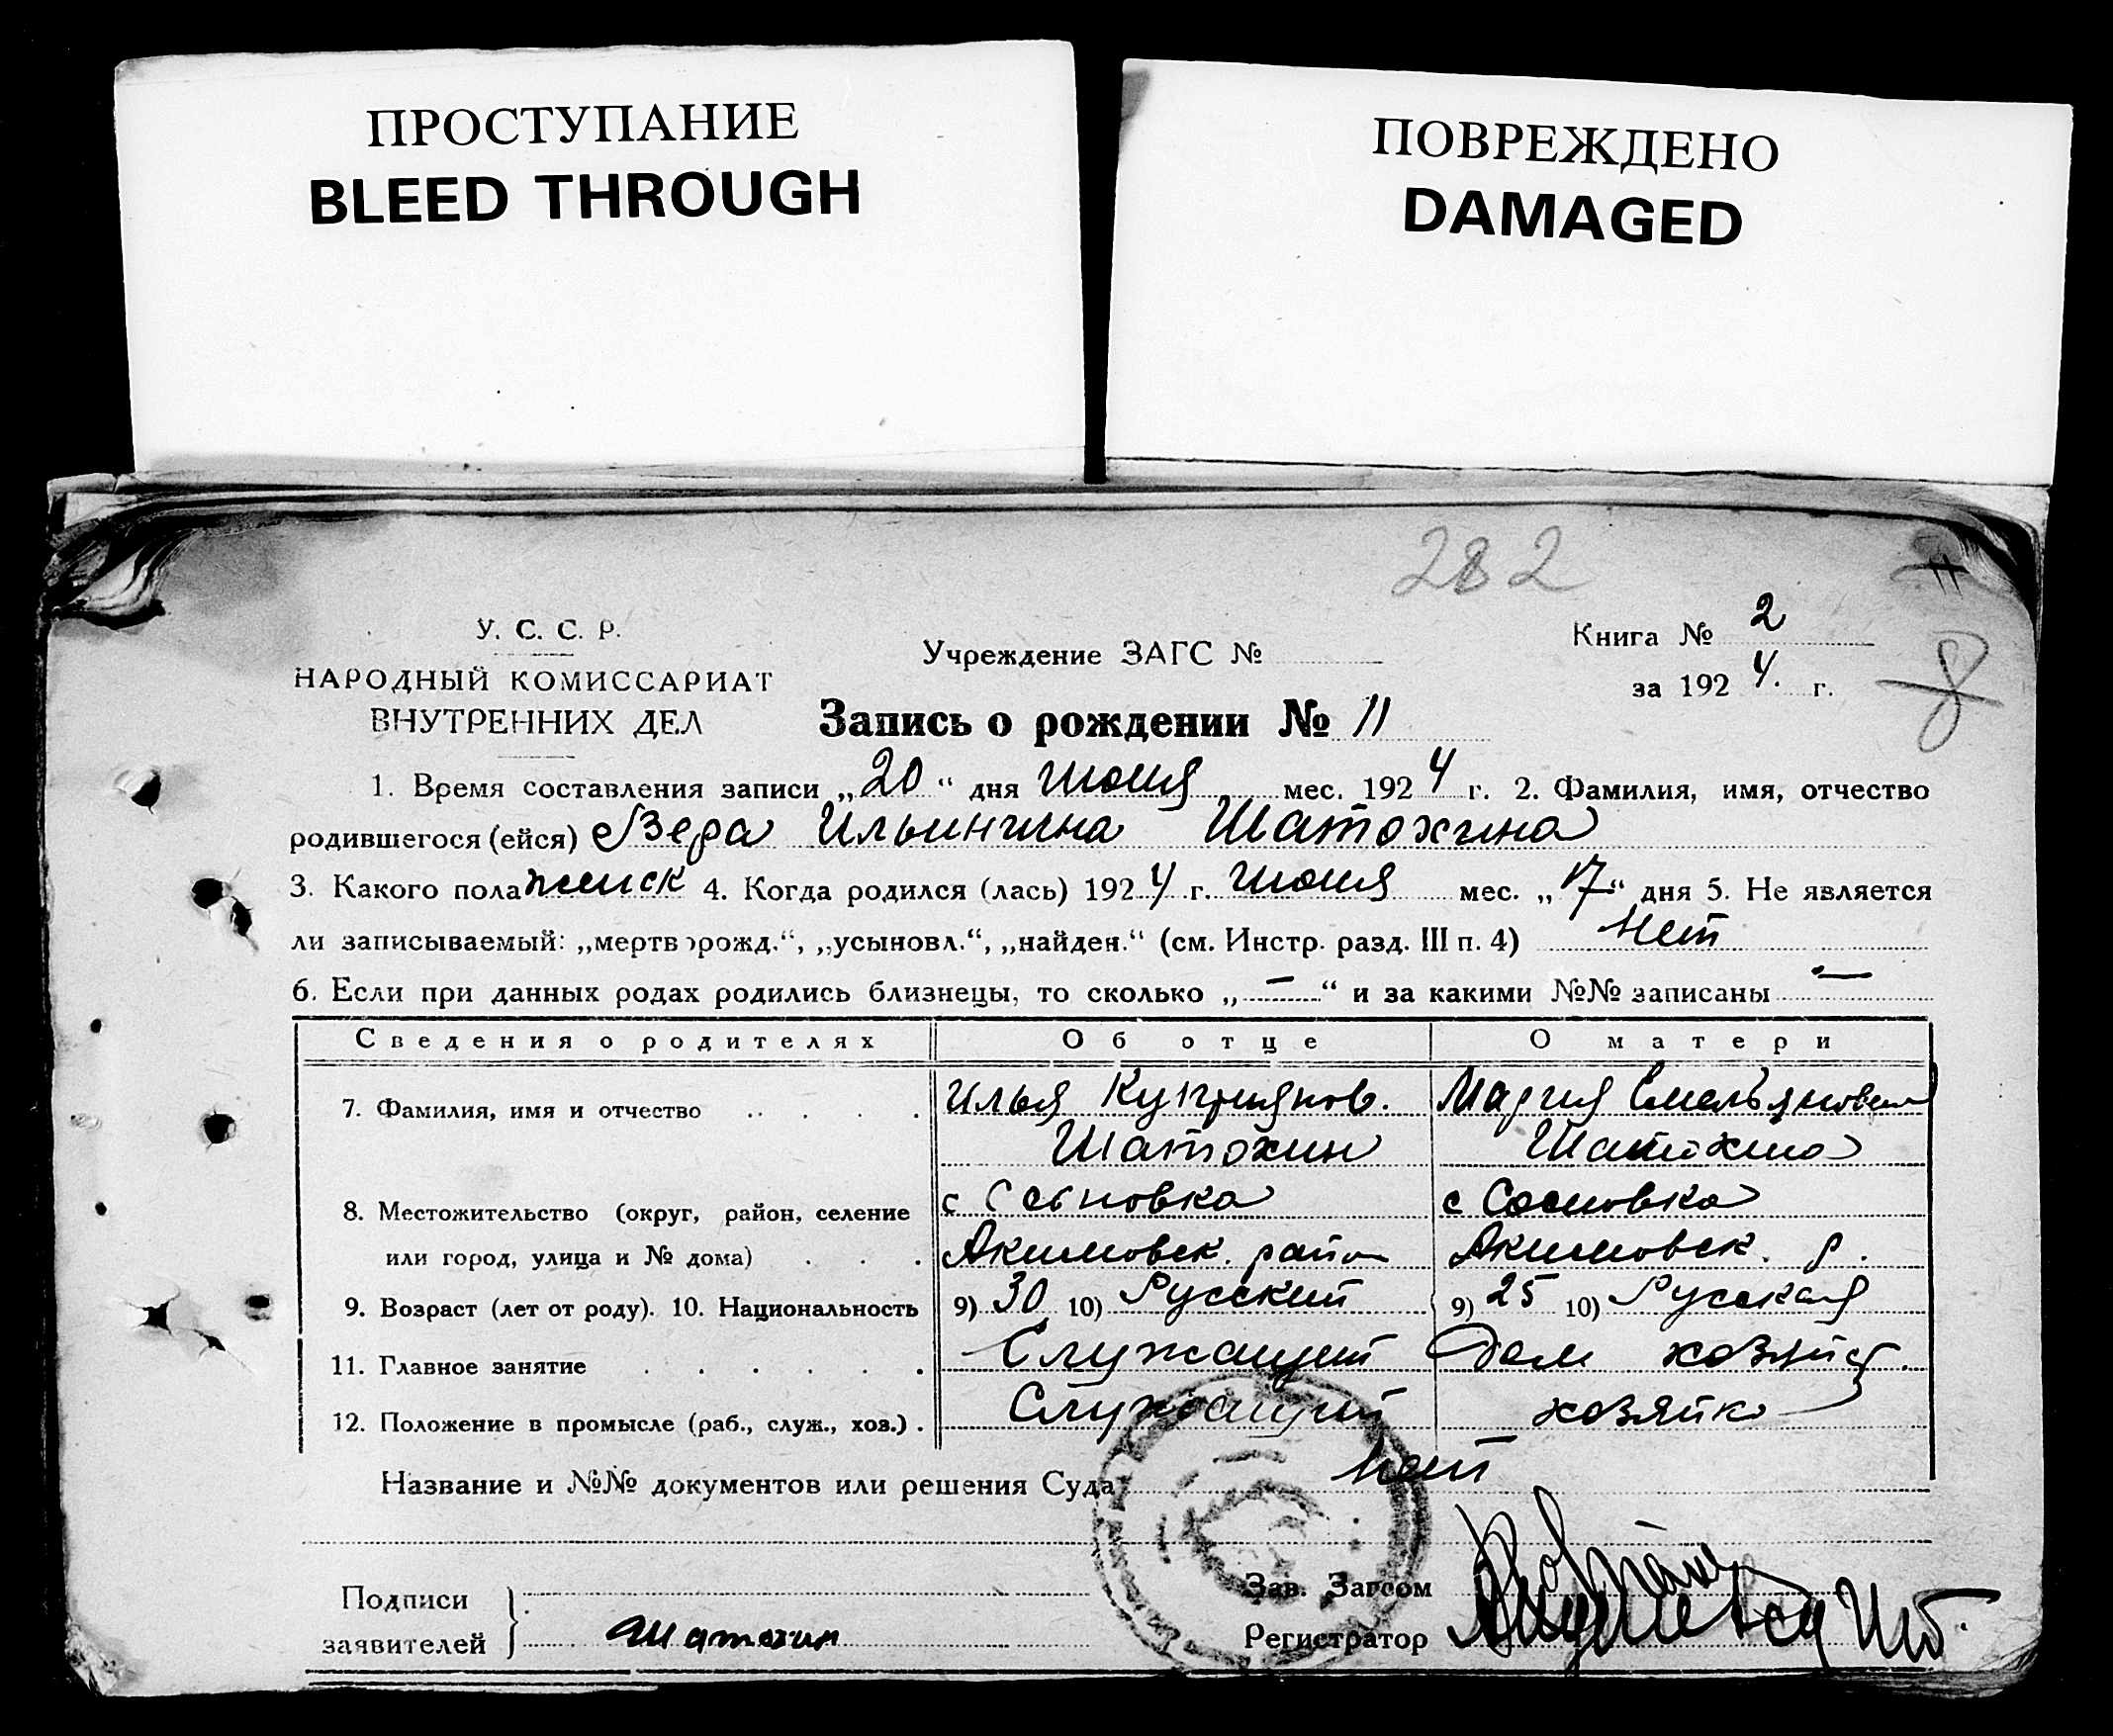 ПРОСТУПАНИЕ
BLEED THROUGH
ПОВРЕЖДЕНО
DAMAGED
282
11
8
У. С. С. Р.
НАРОДНЫЙ КОМИССАРИАТ
ВНУТРЕННИХ ДЕЛ
Учреждение ЗАГС №
Книга № 2
за 1924. г.
Запись о рождении № 11
1. Время составления записи „20“ дня июня мес. 1924 г. 2. Фамилия, имя, отчество
родившегося (ейся) Вера Ильинична Шатохина
3. Какого пола женск 4. Когда родился (лась) 1924 г. июня мес. „17“ дня 5. Не является
ли записываемый: „мертворожд.“, „усыновл.“, „найден.“ (см. Инстр. разд. III п. 4) Нет
6. Если при данных родах родились близнецы, то сколько „—“ и за какими №№ записаны —
Сведения о родителях Об отце О матери
7. Фамилия, имя и отчество . . . . Илья Куприянов. Мария Емельяновна
Шатохин Шатохина
8. Местожительство (округ, район, селение с Сосновка с Сосновка
или город, улица и № дома) . . . Акимовск. район Акимовск. р.
9. Возраст (лет от роду). 10. Национальность 9) 30 10) Русский 9) 25 10) Русская
11. Главное занятие . . . . . . Служащий Дом хозяйс.
12. Положение в промысле (раб., служ., хоз.) . Служащий хозяйка
Название и №№ документов или решения Суда Нет
Подписи
заявителей
Шатохин
Зав. Загсом
Регистратор